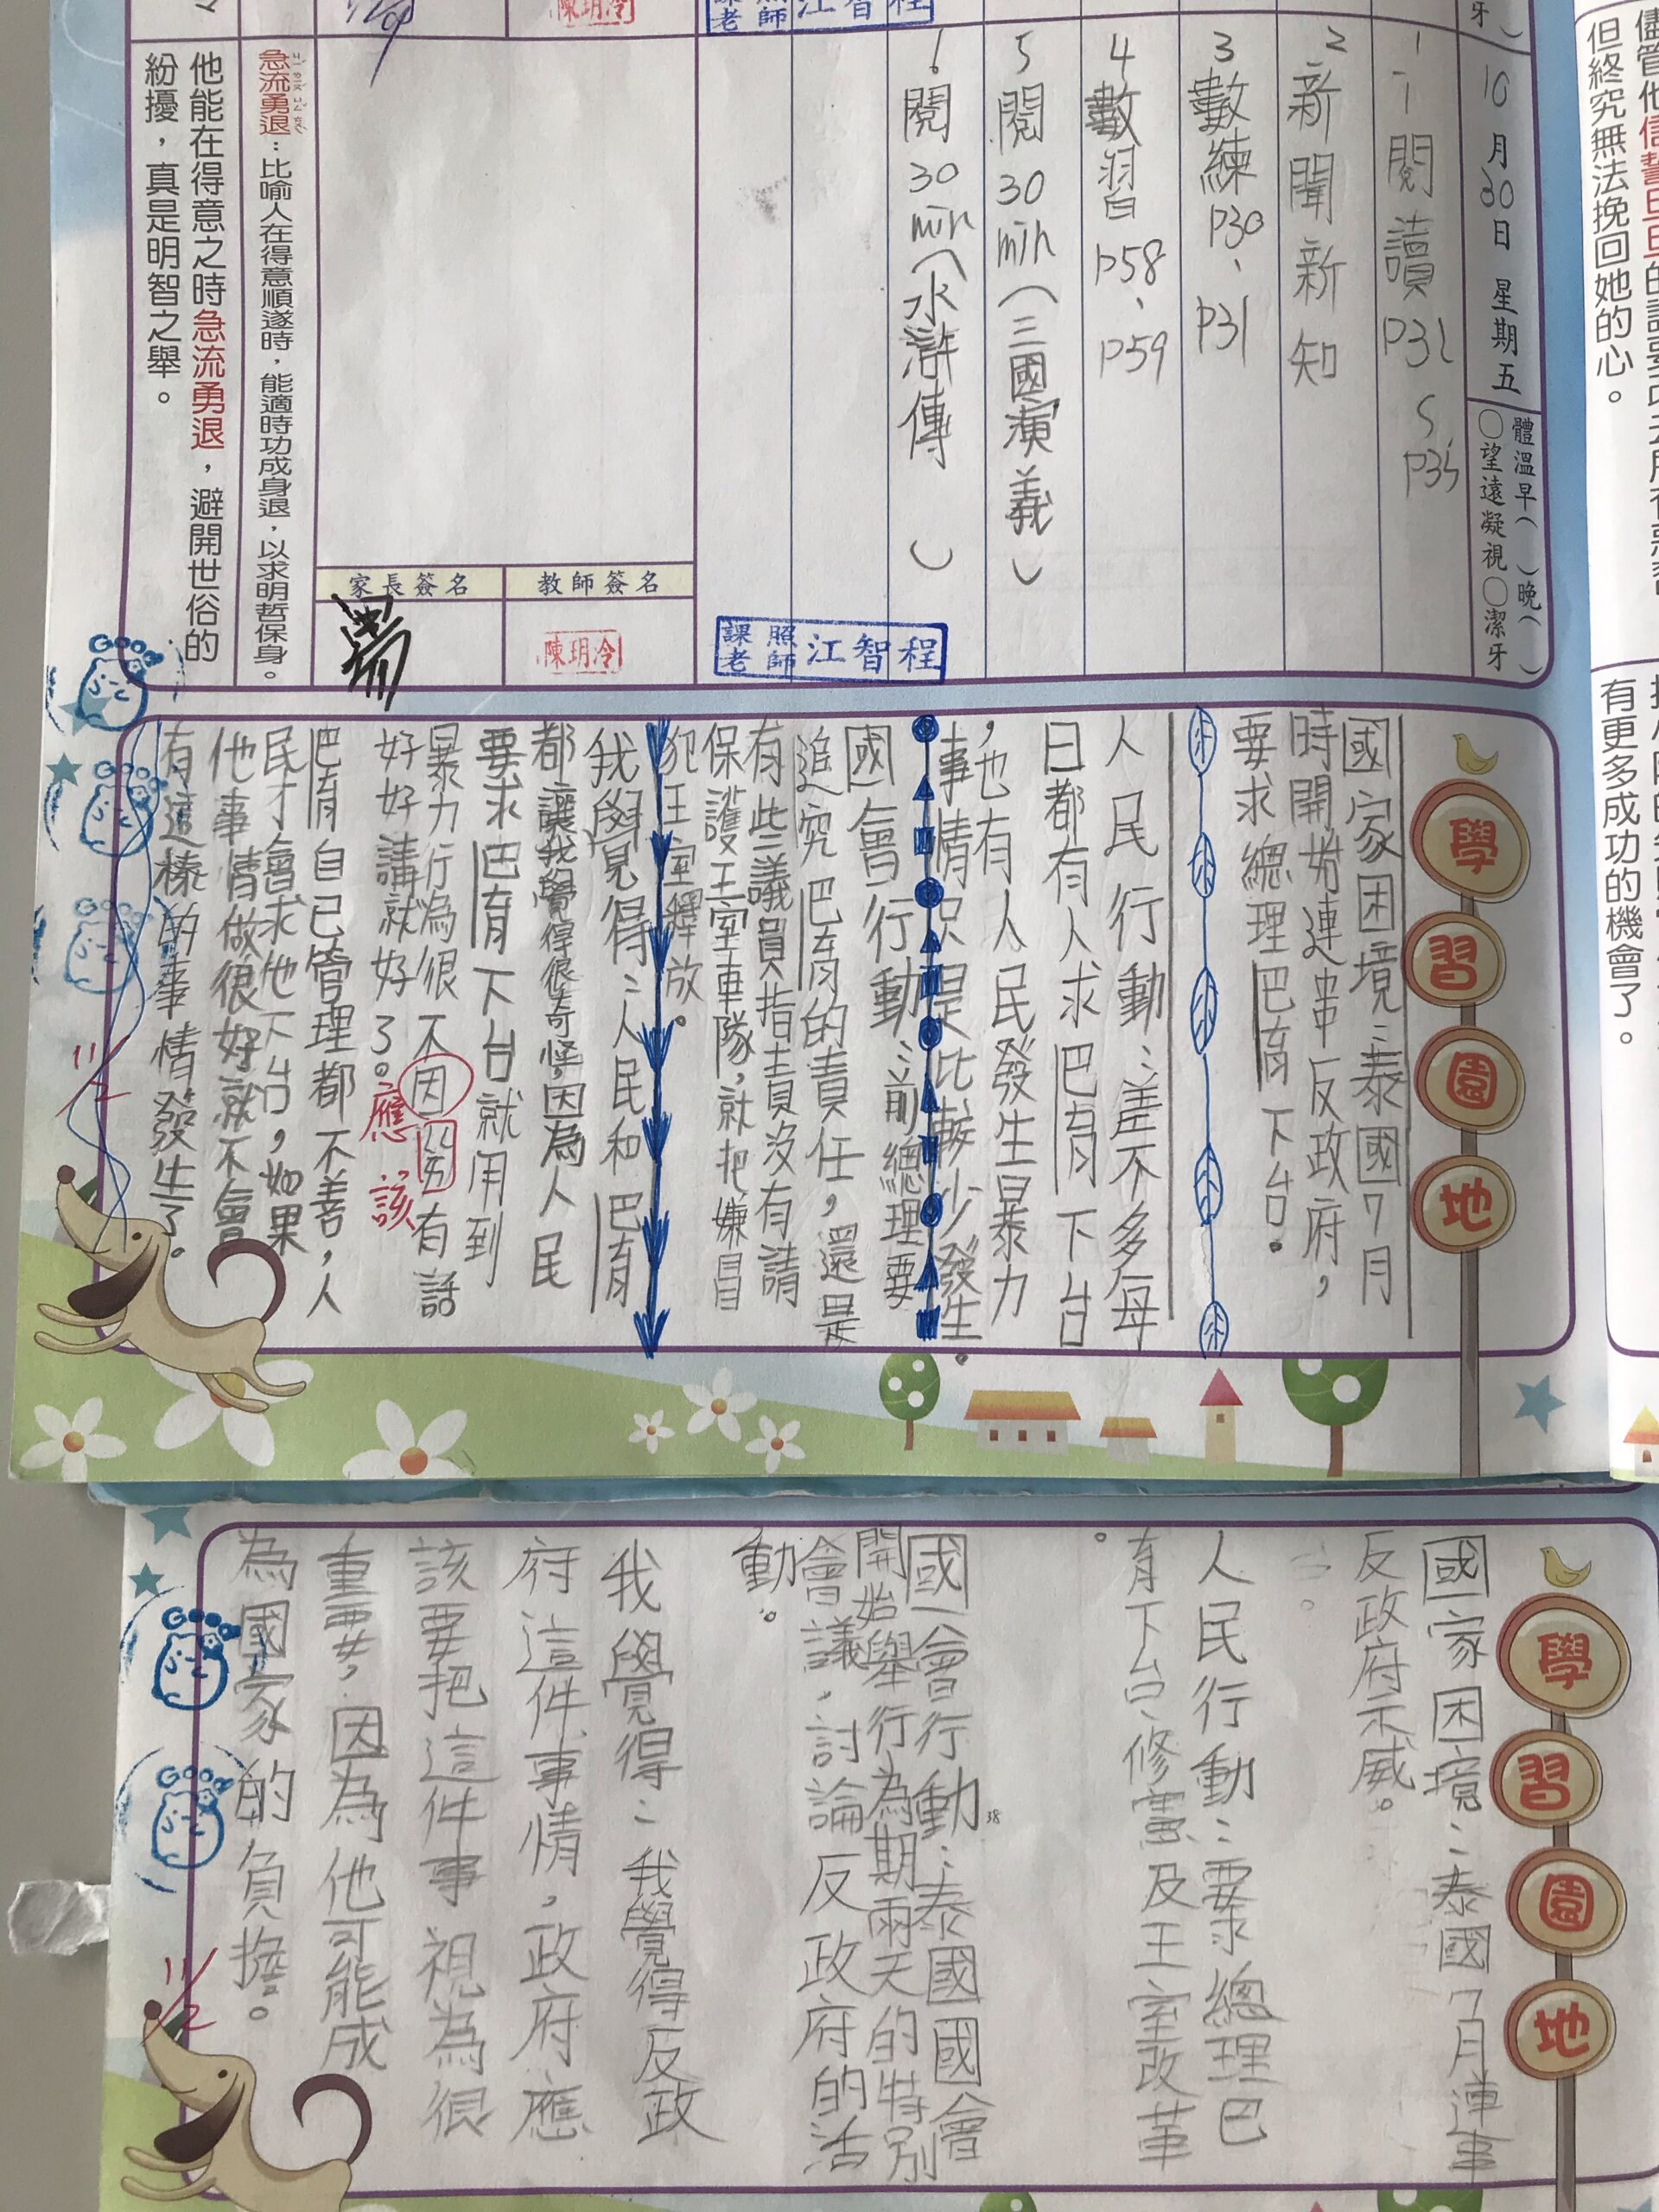 儘管他信誓旦旦的
但終究無法挽回她的心。
有更多成功的機會了。
10月30日 星期五
體溫早( )晚( )
○望遠凝視○潔牙
1 閱讀P32 P35
2 新聞新知
3 數練P30、P31
4 數習P58、P59
5 閱30min(三國演義)
6 閱30min(水滸傳)
課照老師 江智程
教師簽名
陳玥冷
家長簽名
急流勇退:比喻人在得意順遂時,能適時功成身退,以求明哲保身。
他能在得意之時急流勇退,避開世俗的
紛擾,真是明智之舉。
學習園地
國家困境:泰國7月
時開始連串反政府,
要求總理巴育下台。
人民行動:差不多每
日都有人求巴育下台
,也有人民發生暴力
事情只是比較少發生。
國會行動:前總理要
追究巴育的責任,還是
有些議員指責沒有請
保護王室車隊,就把嫌
犯王室釋放。
我學見得:人民和巴育
都讓我覺得很奇怪,因為人民
要求巴育下台就用到
暴力行為很不因 有話
好好講就好了。
應該
巴育自己管理都不善,人
民才會求他下台,如果
他事情做很好就不會
有這樣的事情發生了。
11/2
學習園地
國家困境:泰國7月連串
反政府示威。
人民行動:要求總理巴
育下台、修憲及王室改革
。
國會行動:泰國國會
開始舉行為期兩天的特別
會議,討論反政府的活
動。
38
我覺得:我覺得反政
府這件事情,政府應
該要把這件事視為很
重要,因為他可能成
為國家的負擔。
11/2